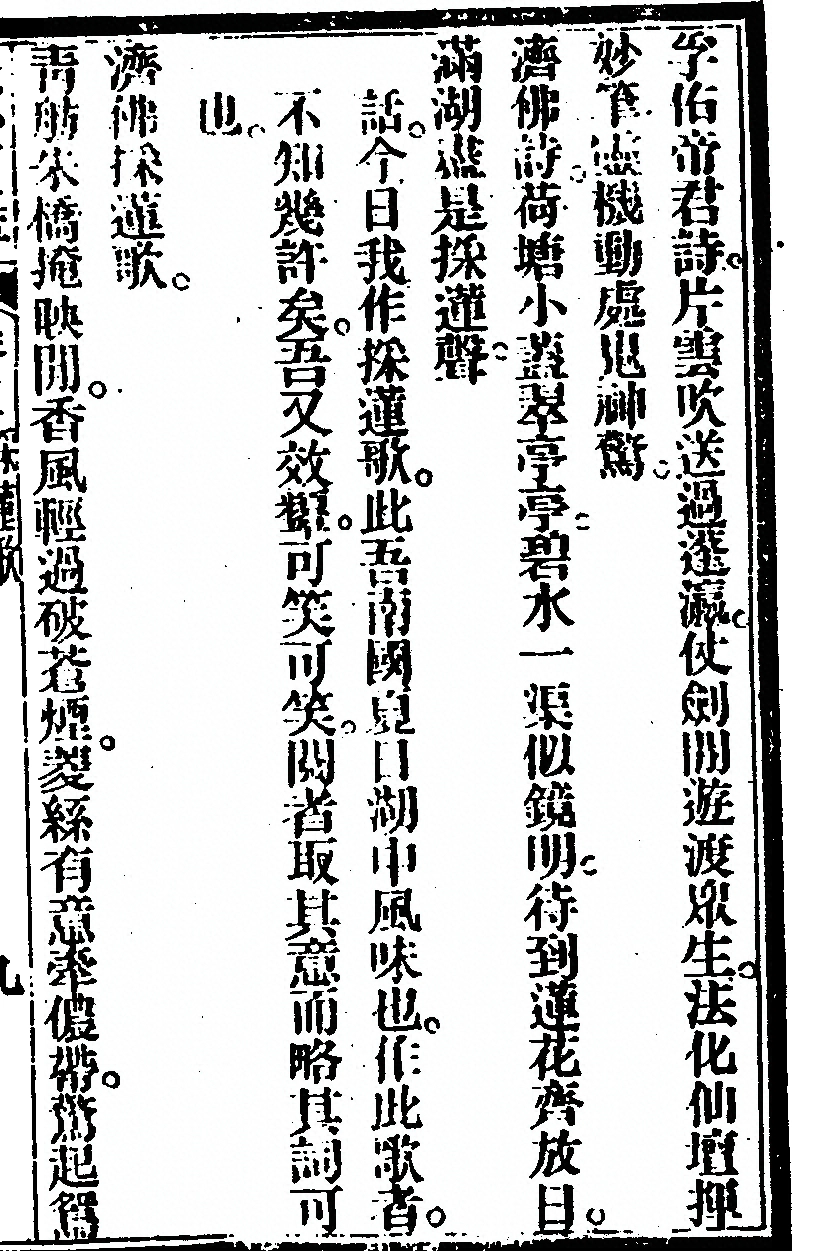 孚佑帝君詩。片雲吹送過蓬瀛。仗劍閒遊渡眾生。法化仙壇揮
妙筆靈機動處鬼神驚。
濟佛詩。荷塘小蓋翠亭亭。碧水一渠似鏡明。待到蓮花齊放日。
滿湖盡是採蓮聲。
話。今日我作採蓮歌。此吾南國夏日湖中風味也。作此歌者。
不知幾許矣。吾又效顰。可笑可笑。閱者取其意而略其詞可
也。
濟佛採蓮歌。
青舫朱橋掩映間。香風輕過破蒼煙。菱絲有意牽儂帶。驚起鴛
採蓮歌
九